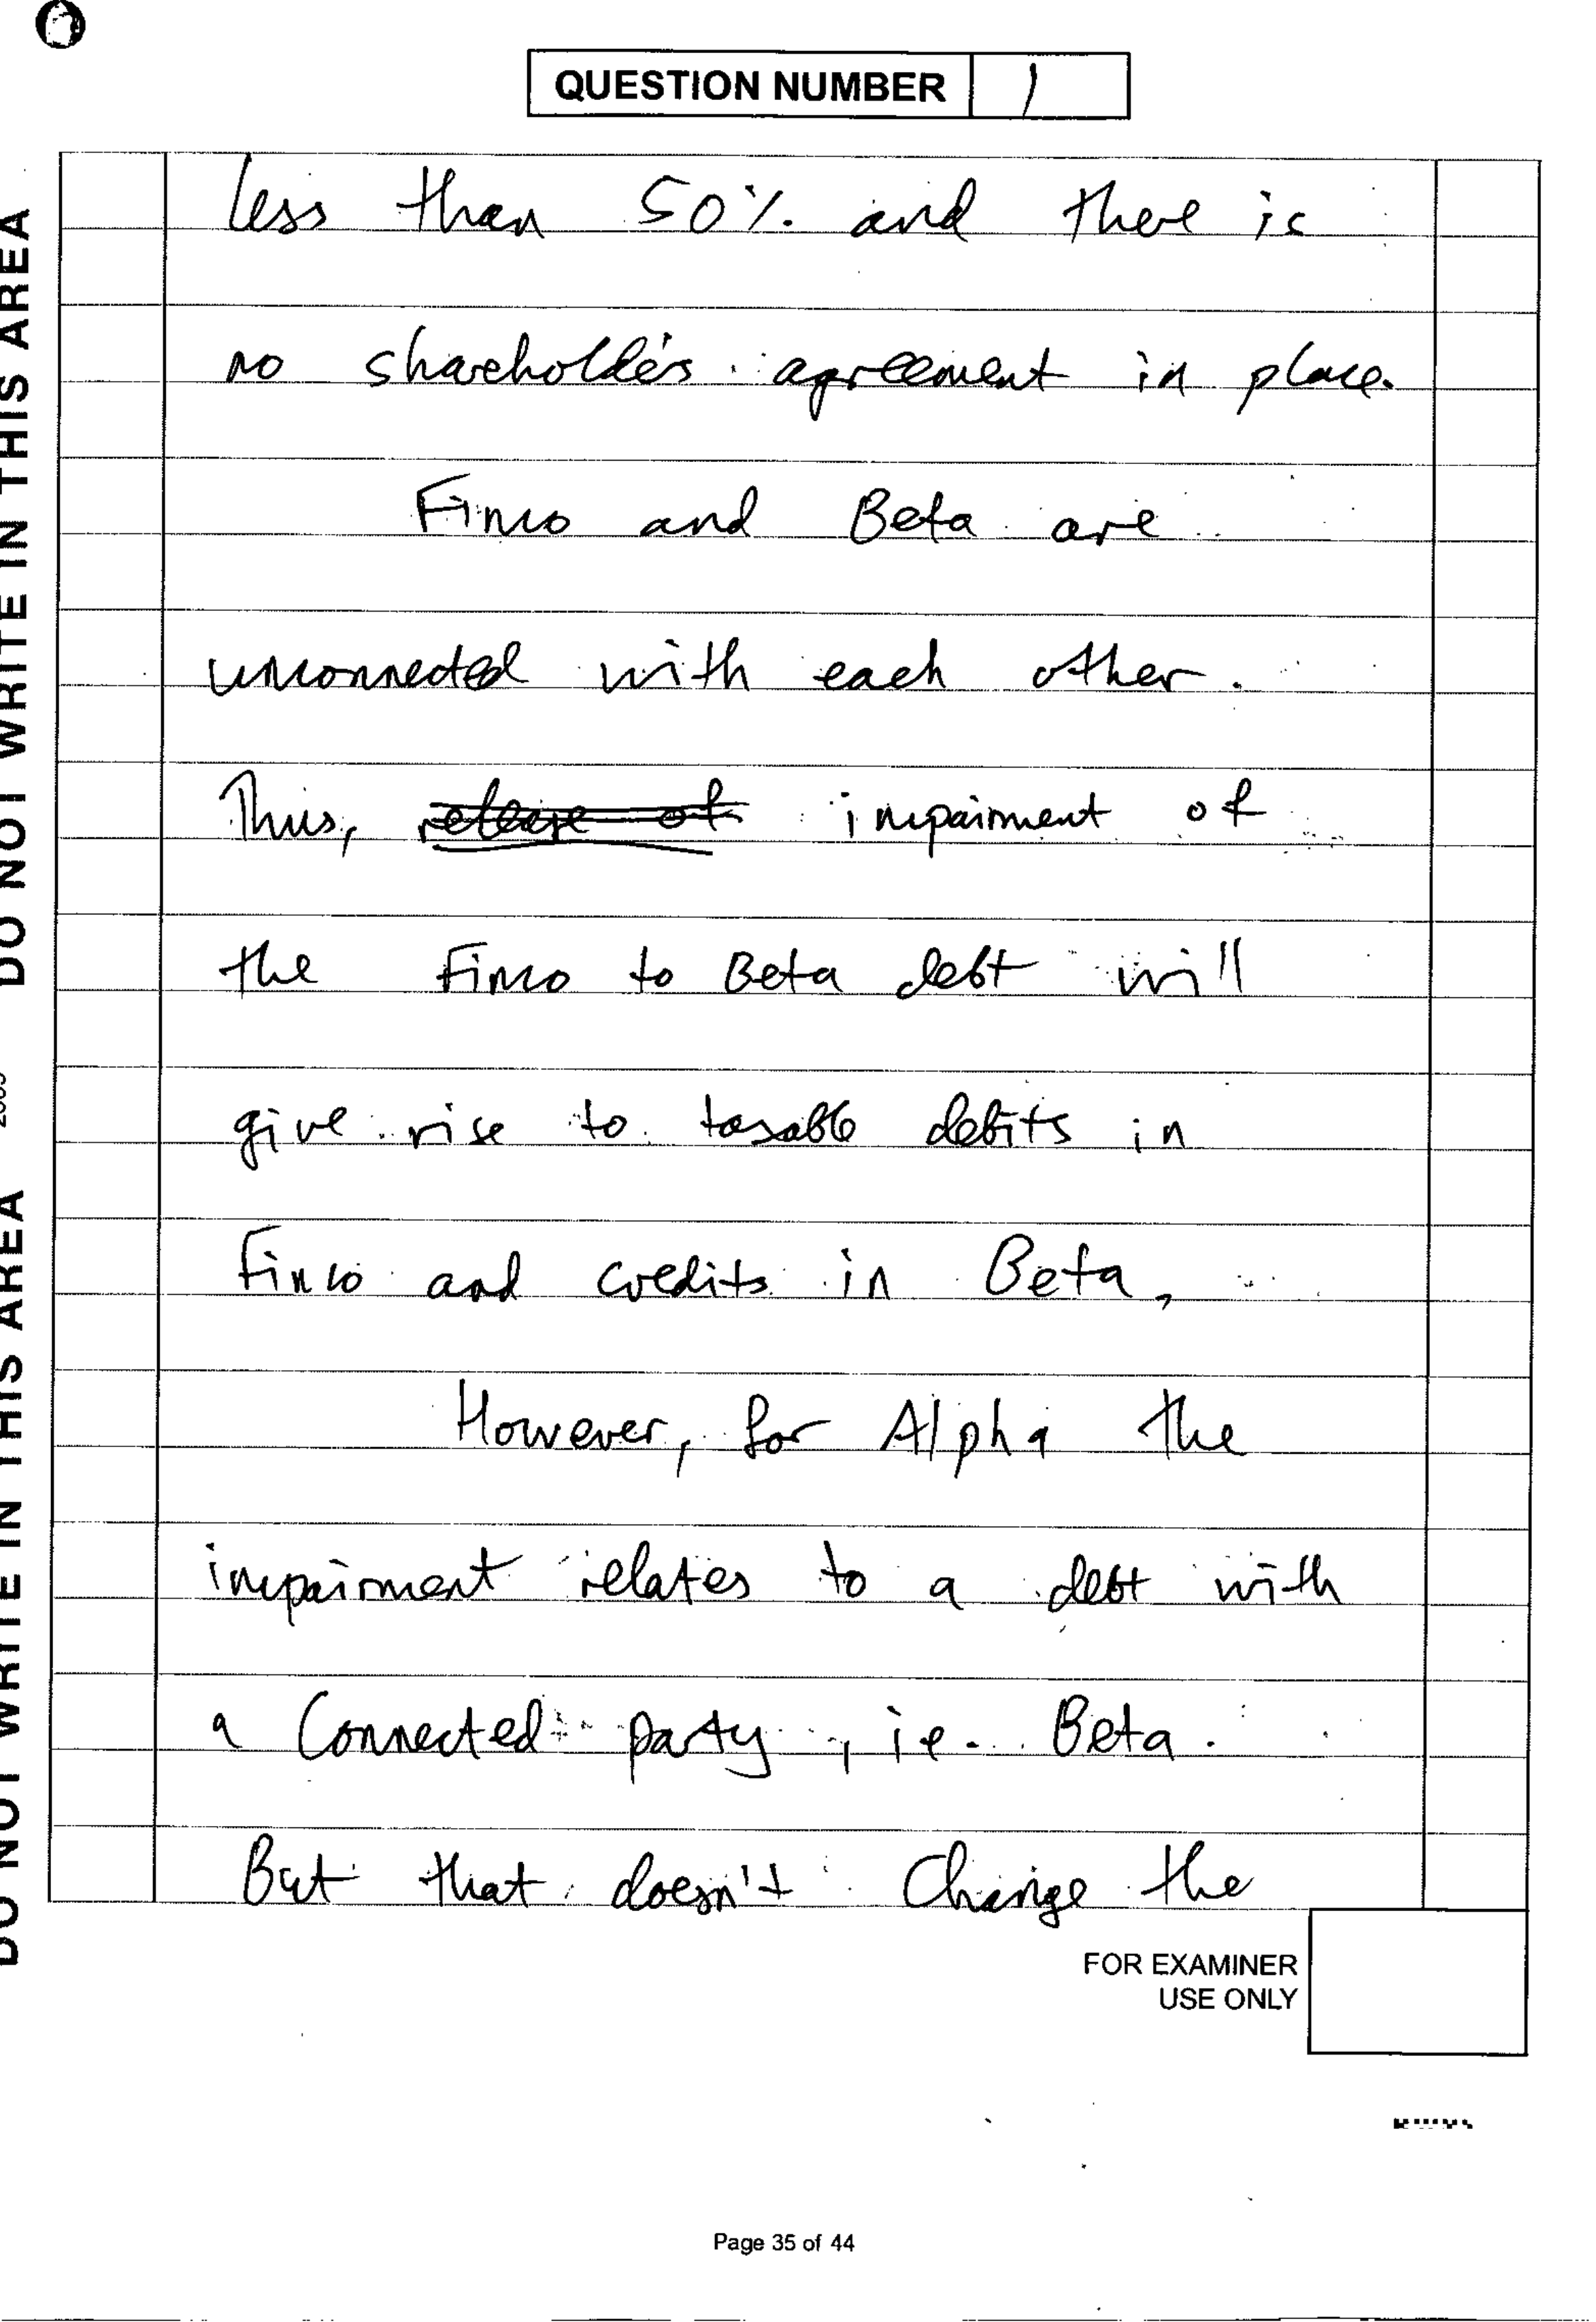 QUESTION NUMBER 1
less than 50% and there is
no shareholder's agreement in place.
Finco and Beta are
unconnected with each other.
Thus, release of impairment of
the Finco to Beta debt will
give rise to taxable debits in
Finco and credits in Beta,
However, for Alpha the
impairment relates to a debt with
a Connected party, ie. Beta.
But that doesn't Change the
FOR EXAMINER
USE ONLY
Page 35 of 44
DO NOT WRITE IN THIS AREA
DO NOT WRITE IN THIS AREA